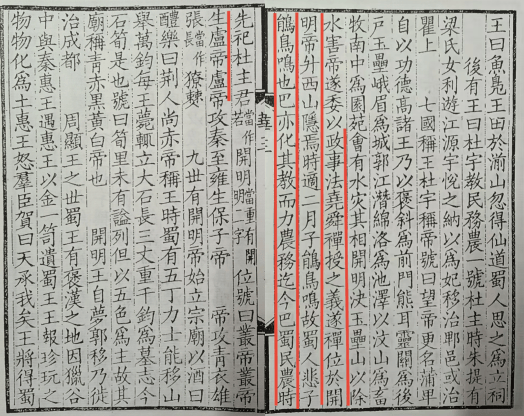 王曰魚鳧王田於湔山忽得仙道蜀人思之為立祠
後有王曰杜宇教民務農一號杜主時朱提有
梁氏女利遊江源宇悅之納以為妃移治郫邑或治
瞿上　七國稱王杜宇稱帝號曰望帝更名蒲卑
自以功德高諸王乃以褒斜為前門熊耳靈關為後
戶玉壘峨眉為城郭江潛綿洛為池澤以汶山為畜
牧南中為園苑會有水災其相開明決玉壘山以除
水害帝遂委以政事法堯舜禪授之義遂禪位於開
明帝升西山隱焉時適二月子鵑鳥鳴故蜀人悲子
鵑鳥鳴也巴亦化其教而力農務迄今巴蜀民農時
先祀杜主君開明當重有開明字位號曰叢帝叢帝
生盧帝盧帝攻秦至雍生保子帝　帝攻青衣雄
張當作長獠僰　九世有開明帝始立宗廟以酒曰
醴樂曰荊人尚赤帝稱王時蜀有五丁力士能移山
舉萬鈞每王薨輒立大石長三丈重千鈞為墓志今
石筍是也號曰筍里未有諡列但以五色為主故其
廟稱青赤黑黃白帝也　開明王自夢郭移乃徙
治成都　周顯王之世蜀王有褒漢之地因獵谷
中與秦惠王遇惠王以金一笥遺蜀王王報珍玩之
物物化為土惠王怒羣臣賀曰天承我矣王將得蜀